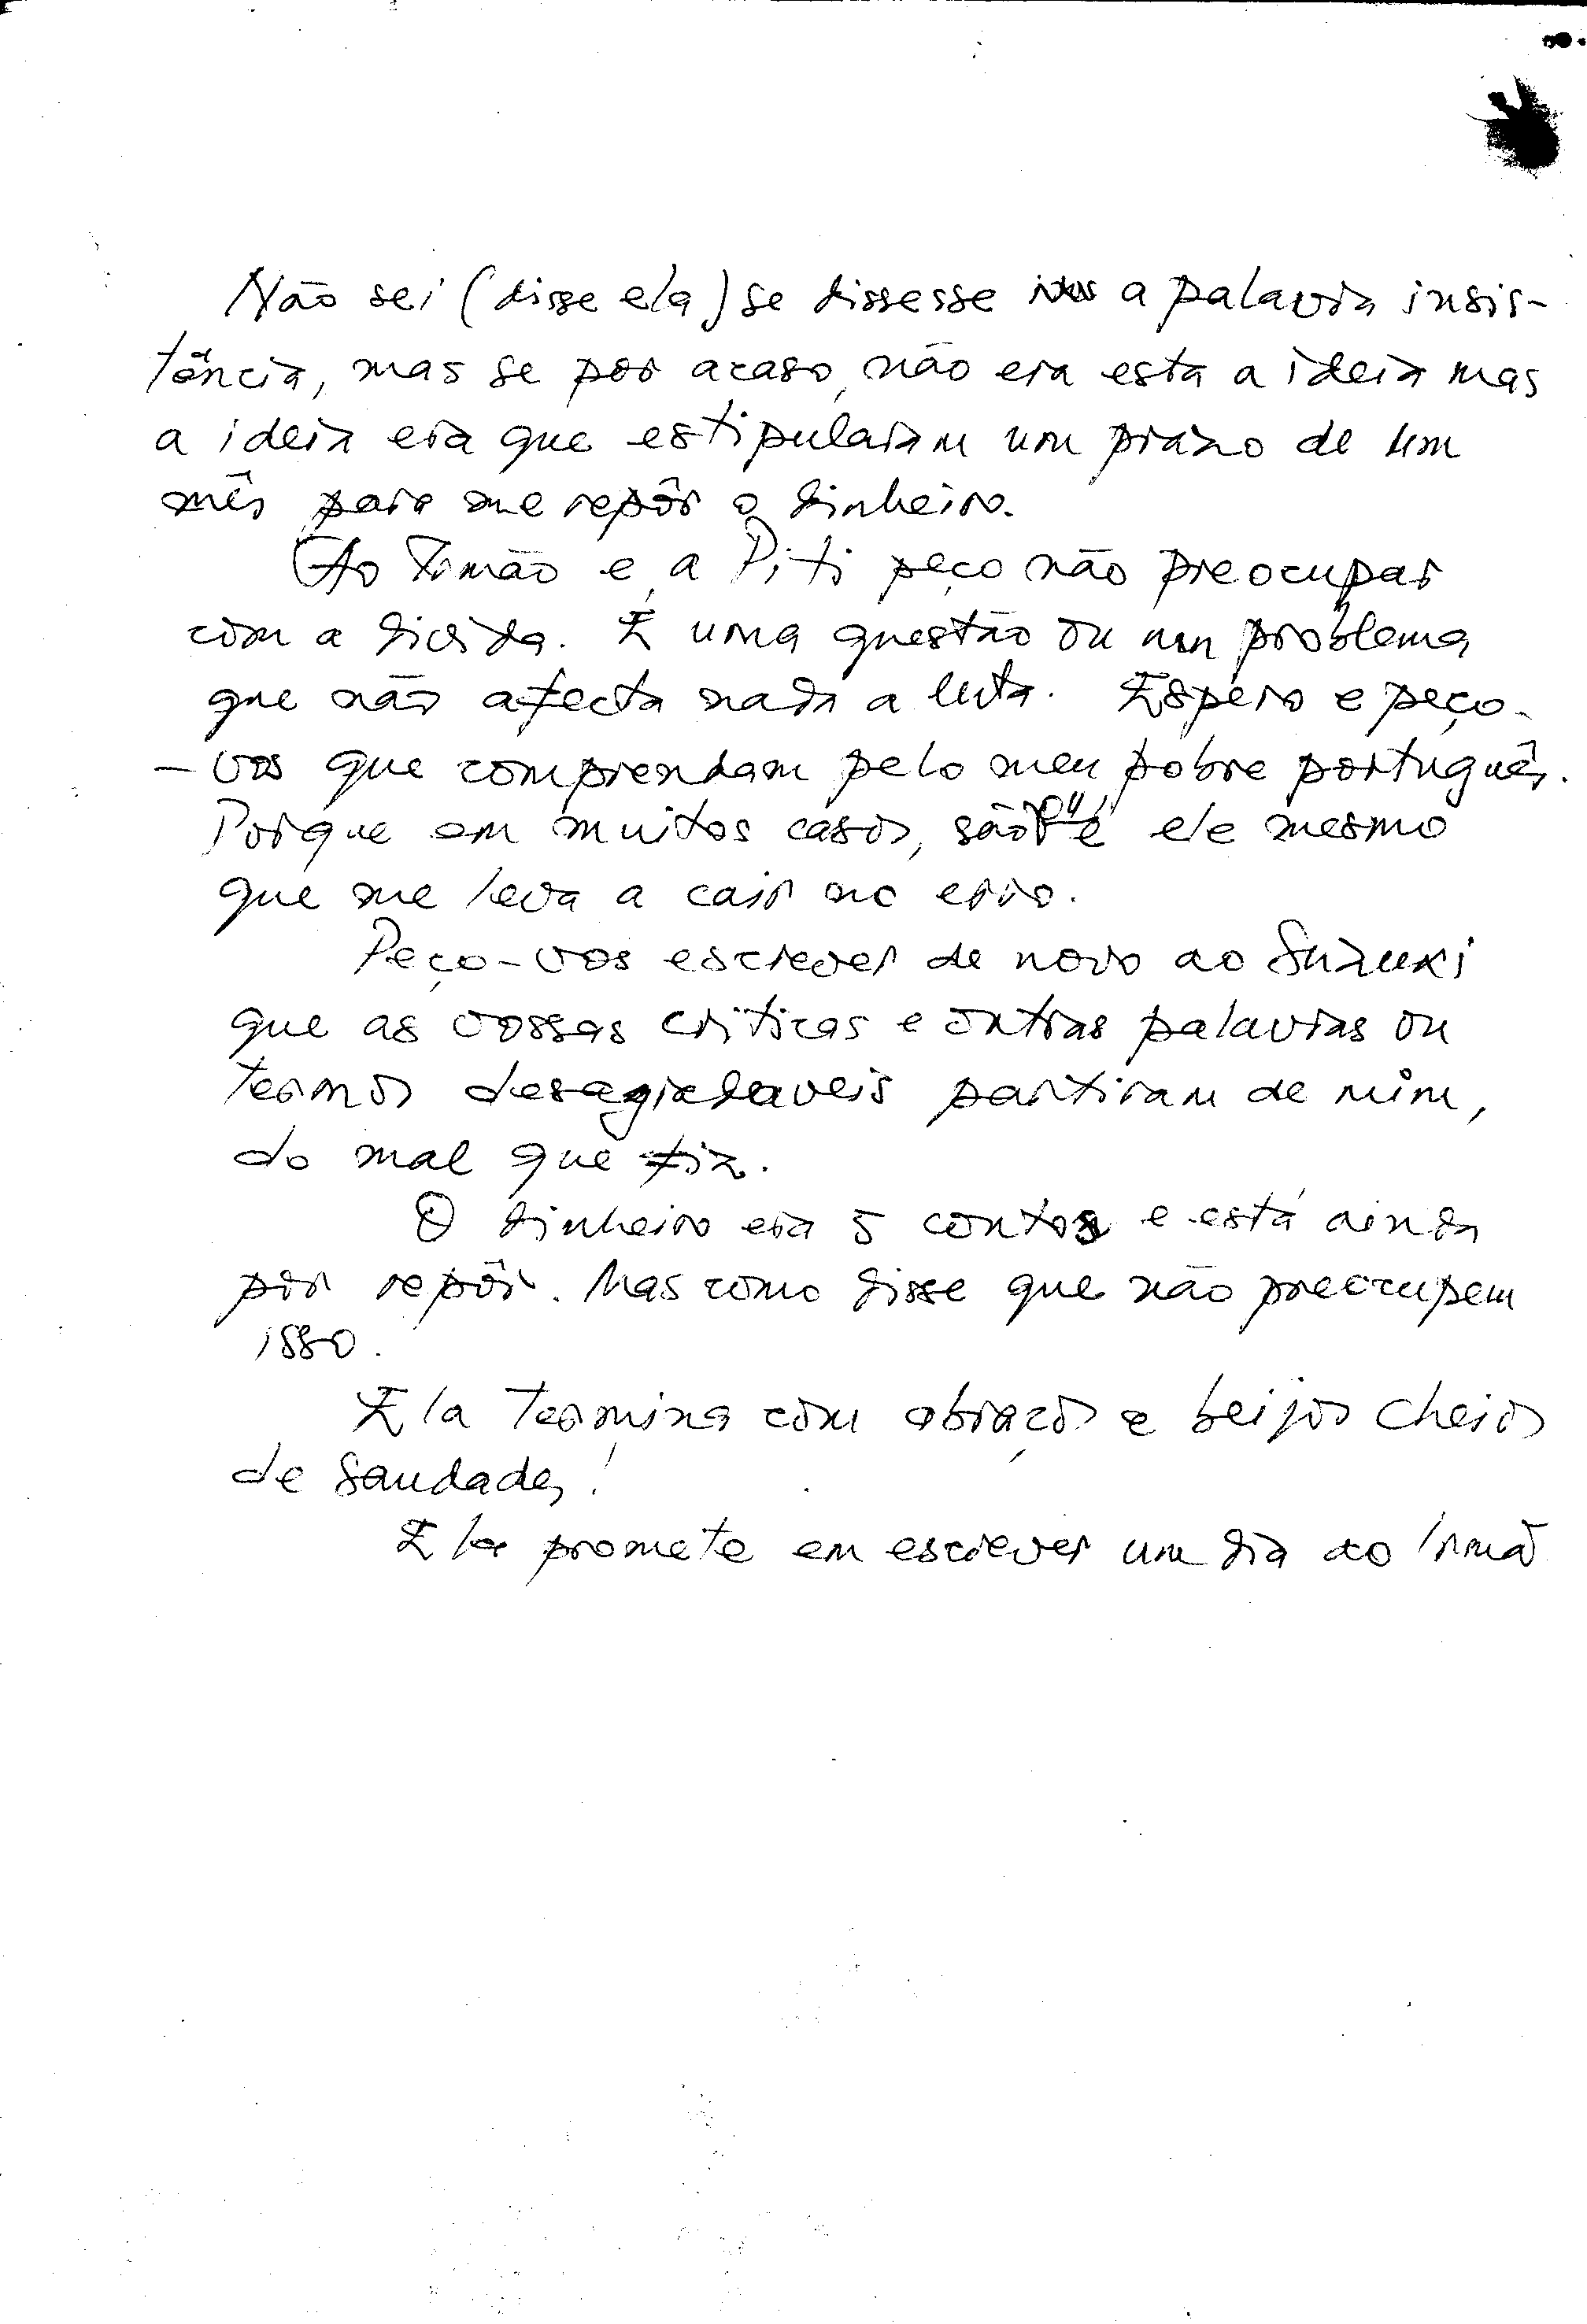 Não sei (disse ela) se dissesse a palavra insis-
tância, mas se por acaso, não era esta a ideia mas
a ideia era que estipularam um prazo de um
mês para me repôr o dinheiro.
Ao Irmão e a Piti peço não preocupar
com a divida. E uma questão ou um problema
que não afecta nada a luta. Espero e peço-
-vos que comprendam pelo meu pobre português.
Porque em muitos casos, são ou é ele mesmo
que me leva a cair no erro.
Peço-vos escrever de novo ao Suzuki
que as vossas criticas e outras palavras ou
termos desagradaveis partiram de mim,
do mal que fiz.
O dinheiro era 5 contos e está ainda
por repôr. Mas como disse que não preocupem
isso.
Ela termina com abraços e beijos cheios
de saudades!
Ela promete em escrever um dia ao Irmã